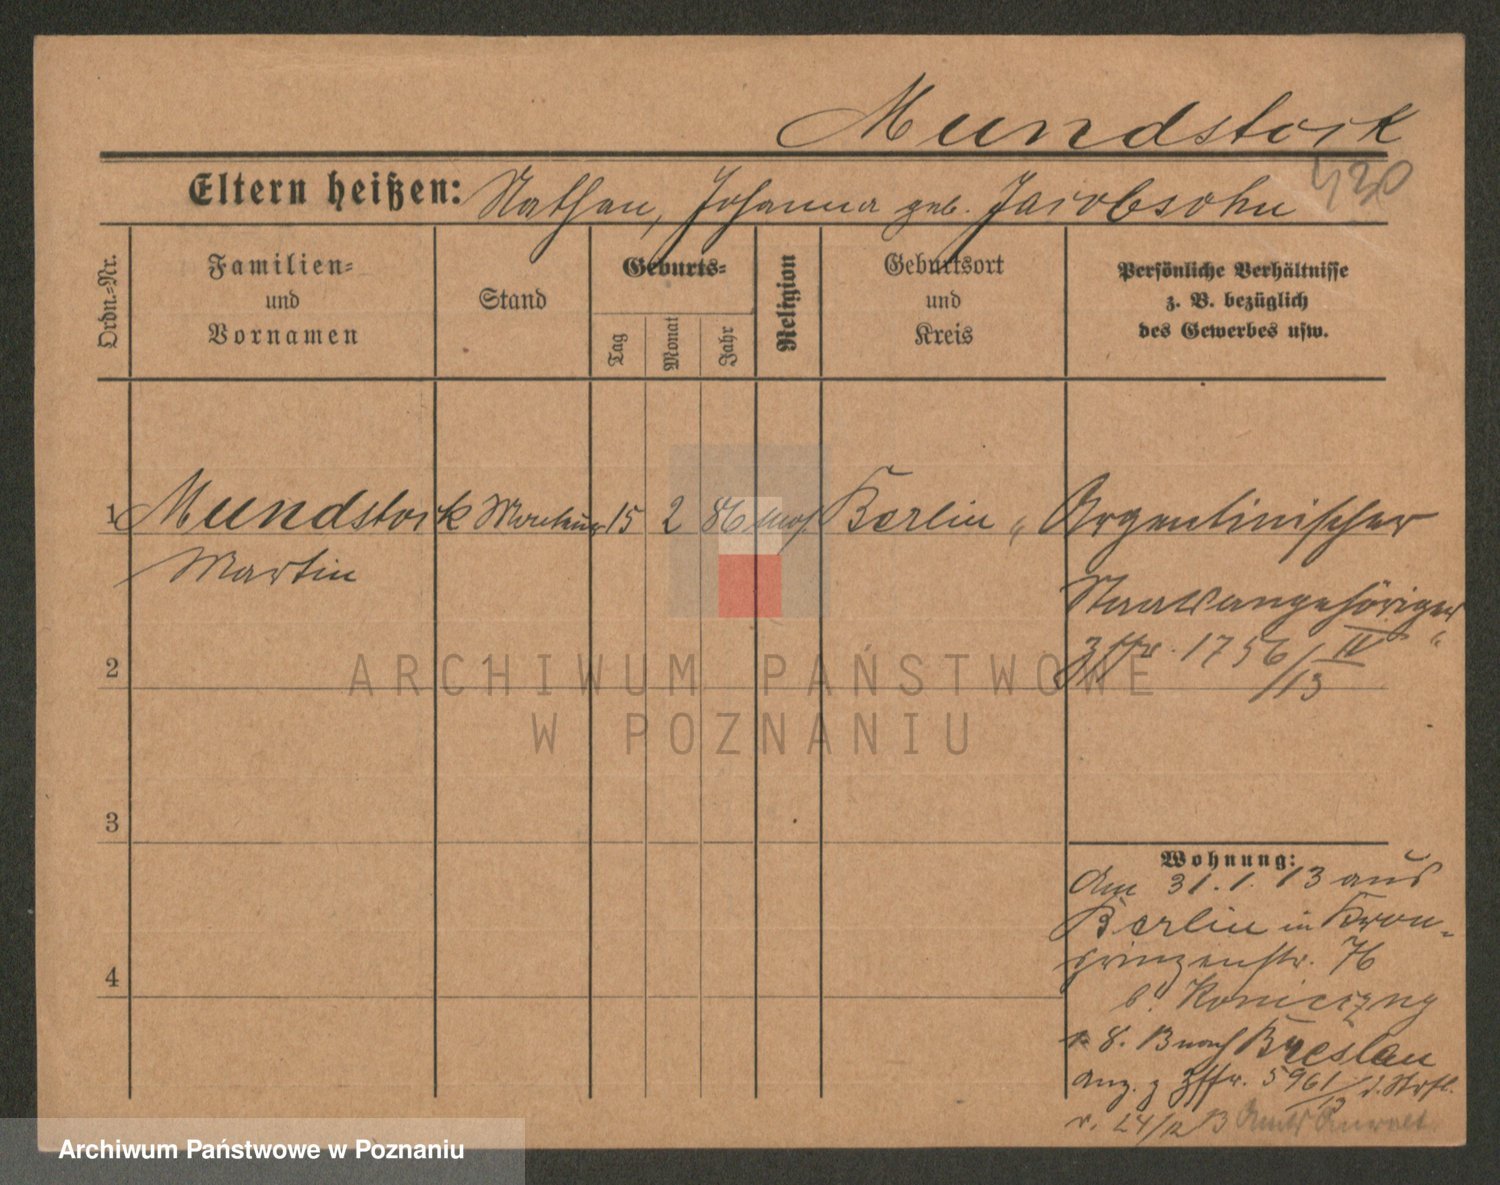 Mundstock
420
Eltern heißen: Nathan, Johanna geb. Jacobsohn
Ordn.-Nr.
Familien-
und
Vornamen
Stand
Geburts-
Tag
Monat
Jahr
Religion
Geburtsort
und
Kreis
Persönliche Verhältnisse
z. B. bezüglich
des Gewerbes usw.
1 Mundstock Monteur 15 2 86 mos. Berlin „Argentinischer
Martin
Staatsangehöriger“
1756/IV
13
2
3
4
ARCHIWUM PAŃSTWOWE
W POZNANIU
Wohnung:
Am 31.1.13 aus
Berlin in Kron-
prinzenstr. 76
b. Konieczny
8. 13 nach Breslau
Anz. z 5961/13
v. 24/12 13 Amts Anwalt
Archiwum Państwowe w Poznaniu